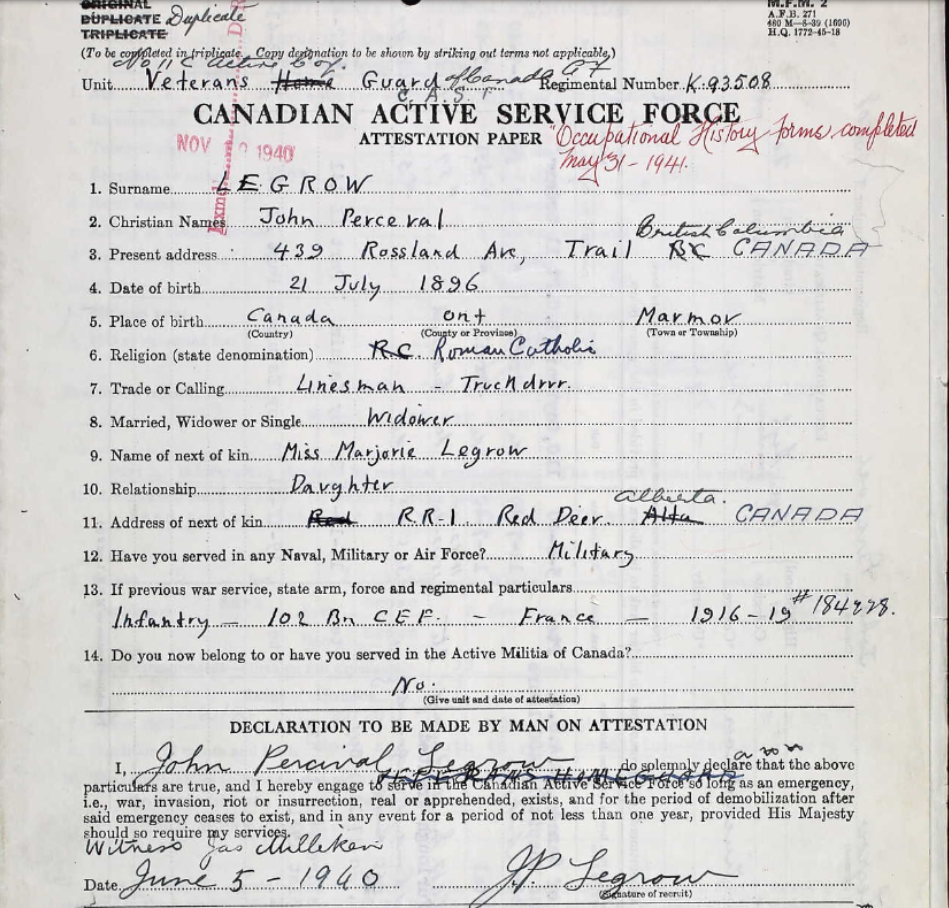 ORIGINAL
DUPLICATE Duplicate
TRIPLICATE
M.F.M. 2
A.F.B. 271
H.Q. 1772-45-18
(To be completed in triplicate. Copy designation to be shown by striking out terms not applicable.)
No 11 C Active Coy.
Unit Veterans Home Guard of Canada Regimental Number K-93508
C. A. S. F
CANADIAN ACTIVE SERVICE FORCE
ATTESTATION PAPER "Occupational History forms completed
May 31-1941.
NOV 1940
1. Surname LEGROW
2. Christian Names John Perceval
British Columbia
3. Present address 439 Rossland Ave, Trail BC CANADA
4. Date of birth 21 July 1896
5. Place of birth Canada ont Marmor
(Country) (County or Province) (Town or Township)
6. Religion (state denomination) R.C. Roman Catholic
7. Trade or Calling Linesman - Truck drvr.
8. Married, Widower or Single Widower
9. Name of next of kin Miss Marjorie Legrow
10. Relationship Daughter
Alberta.
11. Address of next of kin Red R.R-1. Red Deer. Alta CANADA
12. Have you served in any Naval, Military or Air Force? Military
13. If previous war service, state arm, force and regimental particulars
Infantry — 102 Bn C.E.F. - France — 1916-19 #
14. Do you now belong to or have you served in the Active Militia of Canada?
No.
(Give unit and date of attestation)
DECLARATION TO BE MADE BY MAN ON ATTESTATION
I, John Percival Legrow do solemnly declare that the above
VETERANS HOME GUARD
particulars are true, and I hereby engage to serve in the Canadian Active Service Force so long as an emergency,
i.e., war, invasion, riot or insurrection, real or apprehended, exists, and for the period of demobilization after
said emergency ceases to exist, and in any event for a period of not less than one year, provided His Majesty
should so require my services.
Witness Jas Milliken
Date June 5-1940 J.P. Legrow
(Signature of recruit)